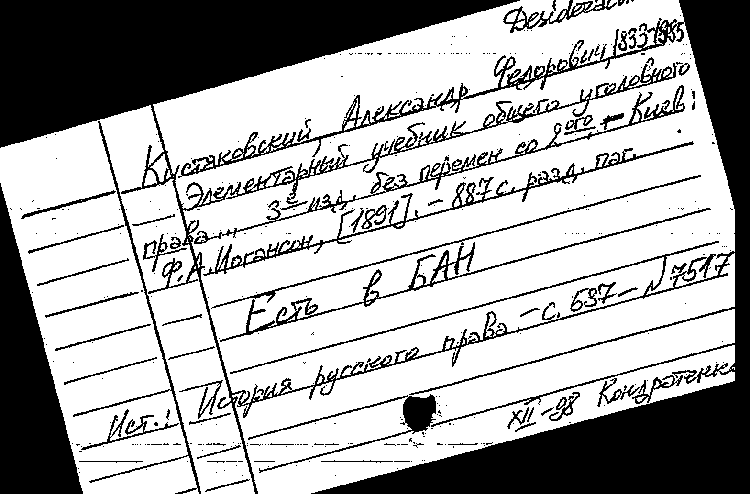 Desiderata
Кистяковский, Александр Федорович, 1833-1885
Элементарный учебник общего уголовного
права... 3е изд. без перемен со 2ого. - Киев:
Ф.А. Иогансон, [1891]. - 887 с. разд. паг.
Есть в БАН
Ист.: История русского права. - с. 637 - N 7517
XII-98 Кондратенко